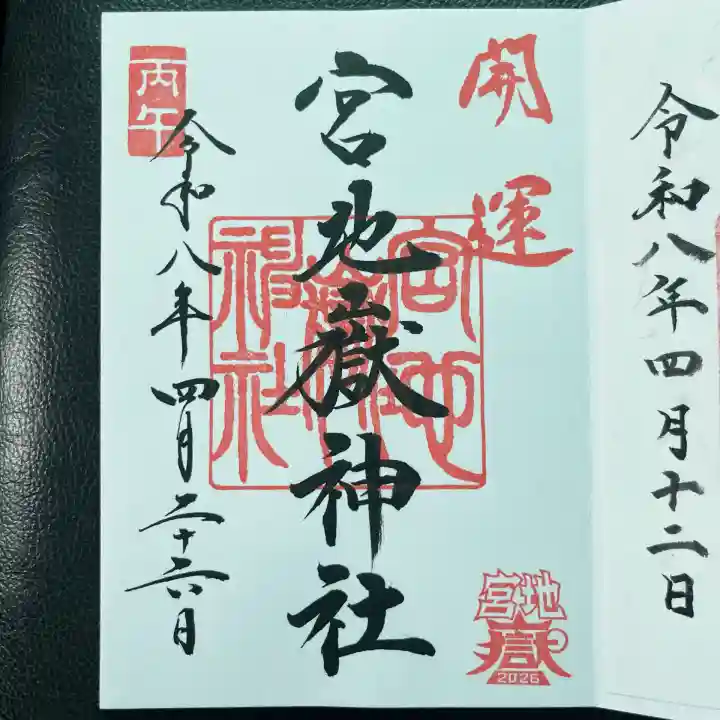 令和八年四月十二日
開運
宮地嶽神社
宮地
嶽
神社
宮地
嶽
2026
丙午
令和八年四月二十六日